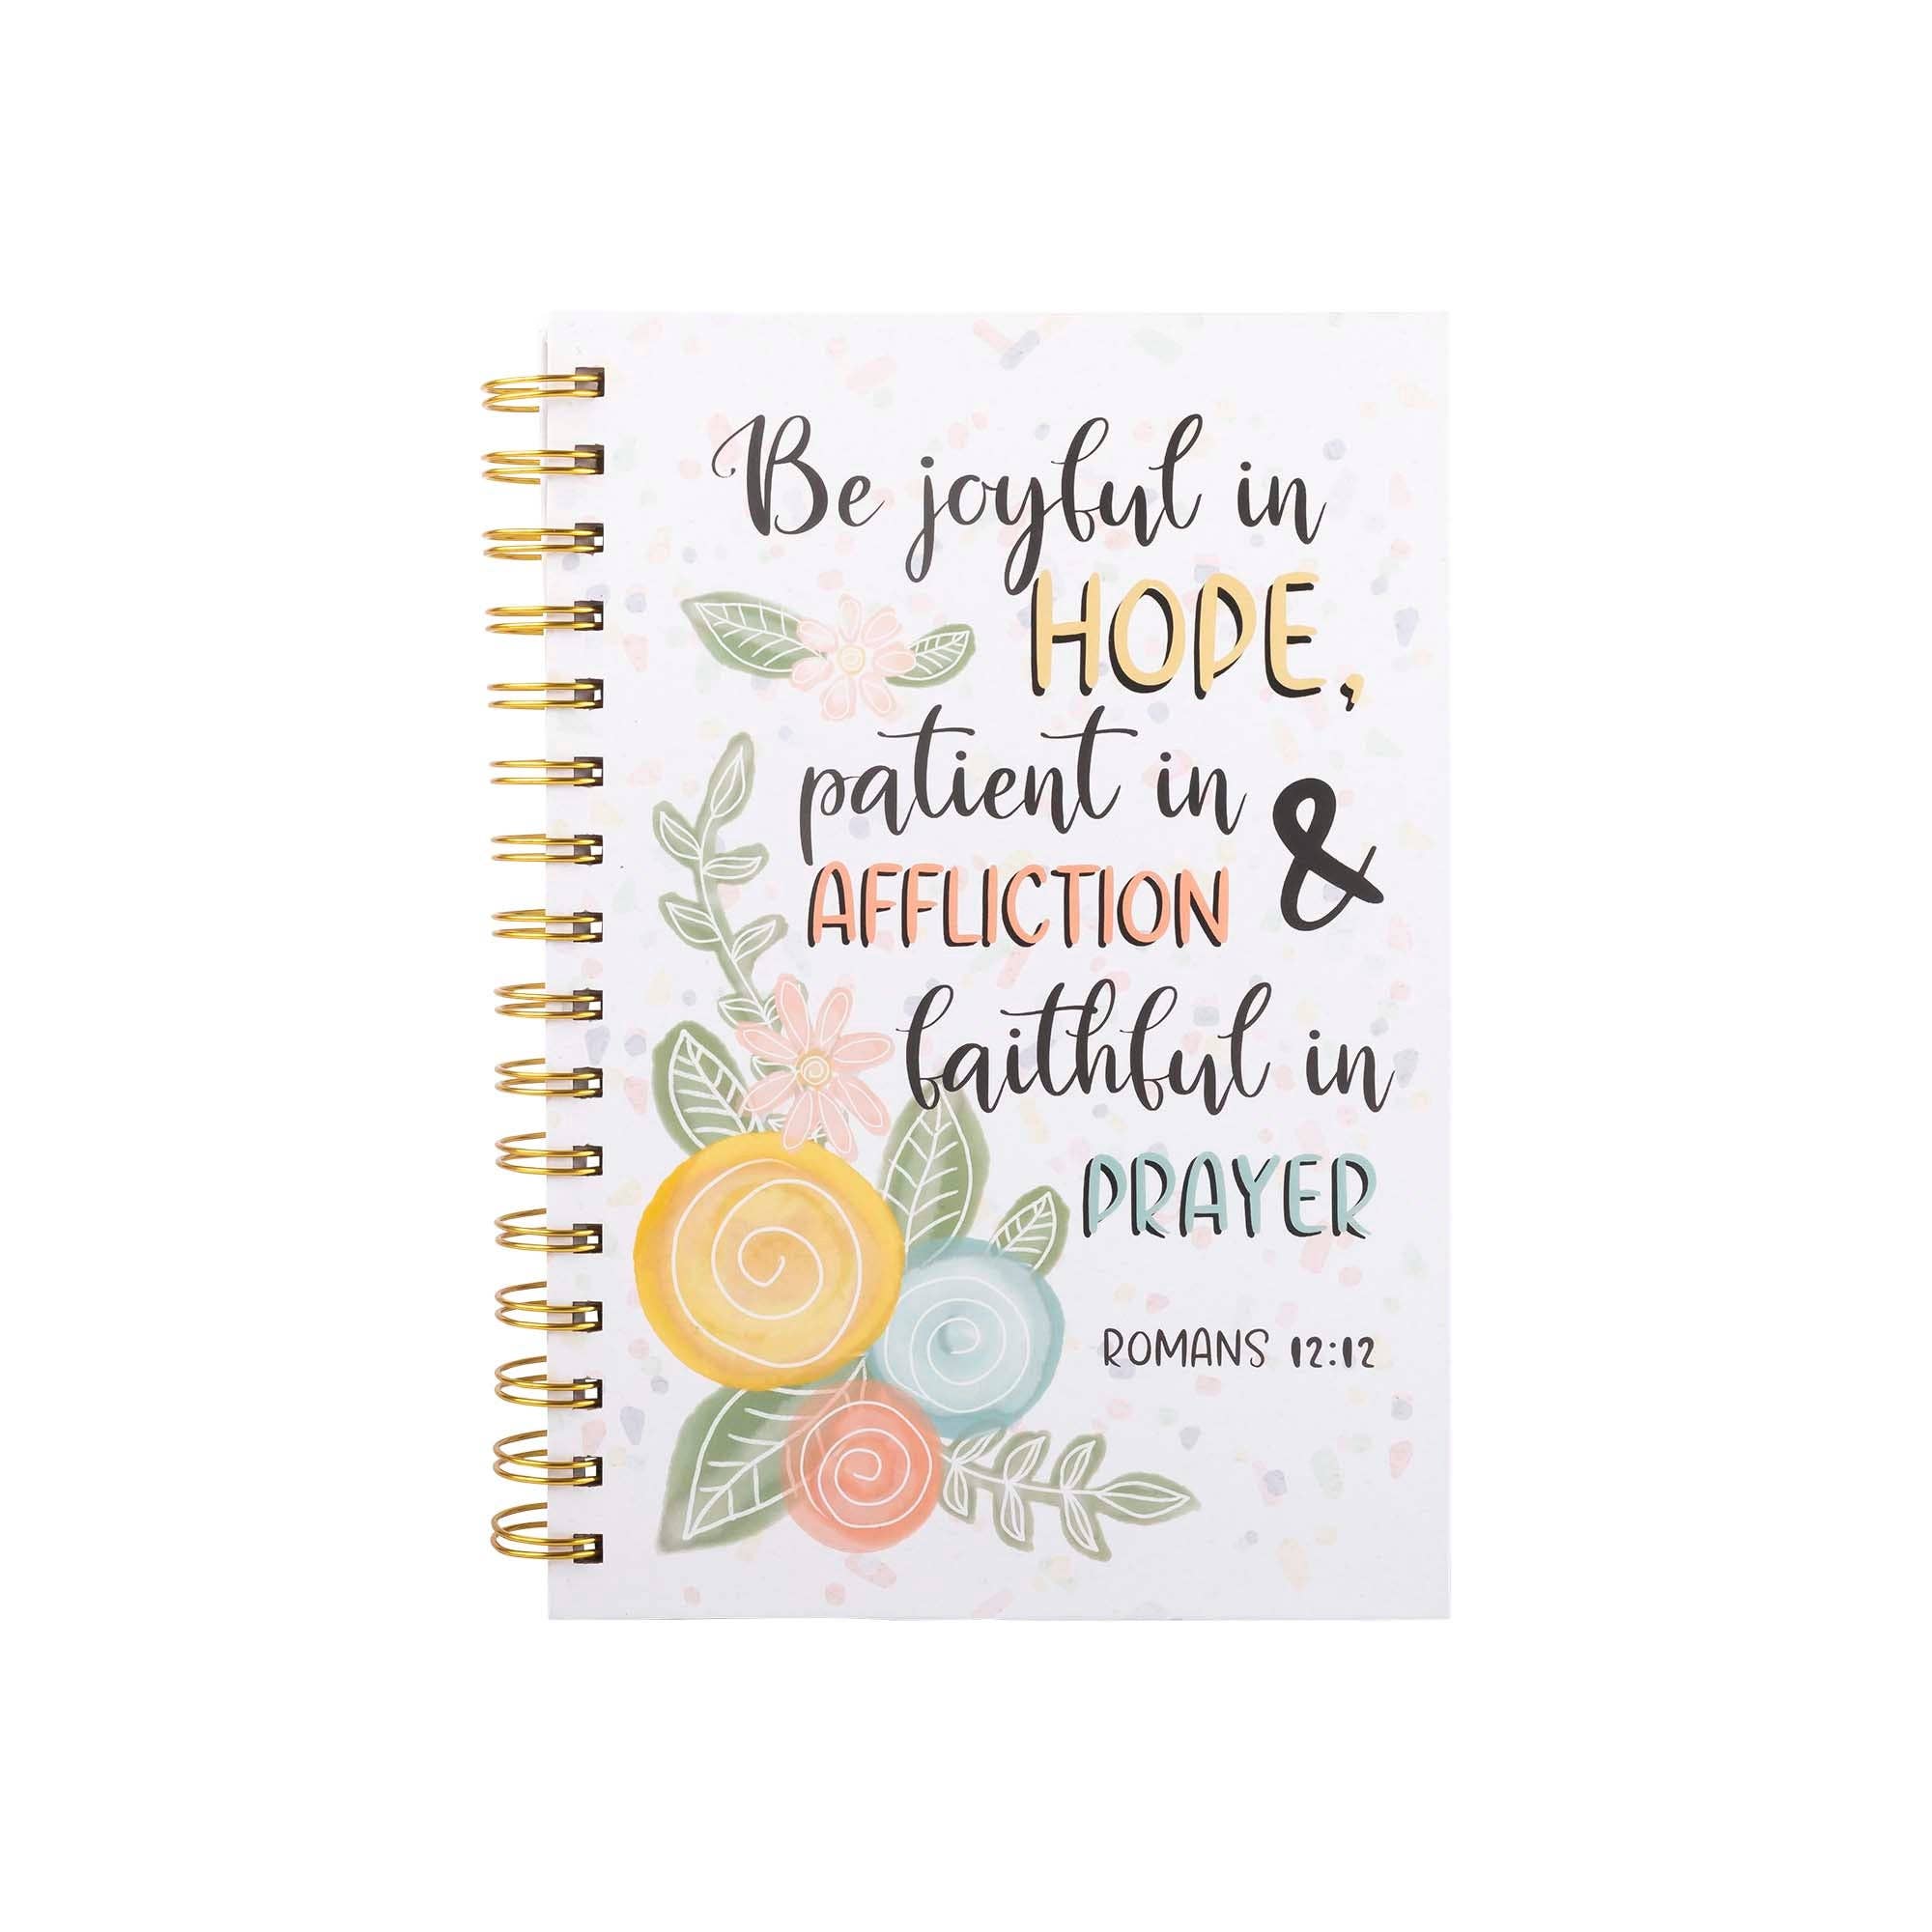 Be joyful in
HOPE,
patient in
AFFLICTION &
faithful in
PRAYER
ROMANS 12:12